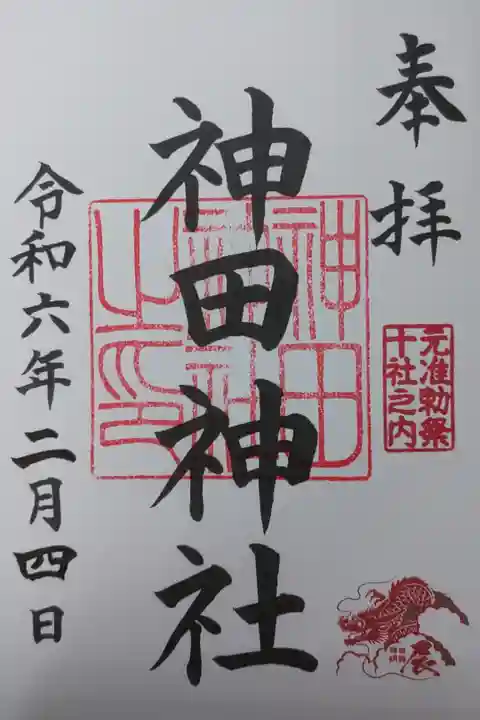 奉拝
元准勅祭
十社之内
神田神社
神田神社之印
辰
令和六年二月四日